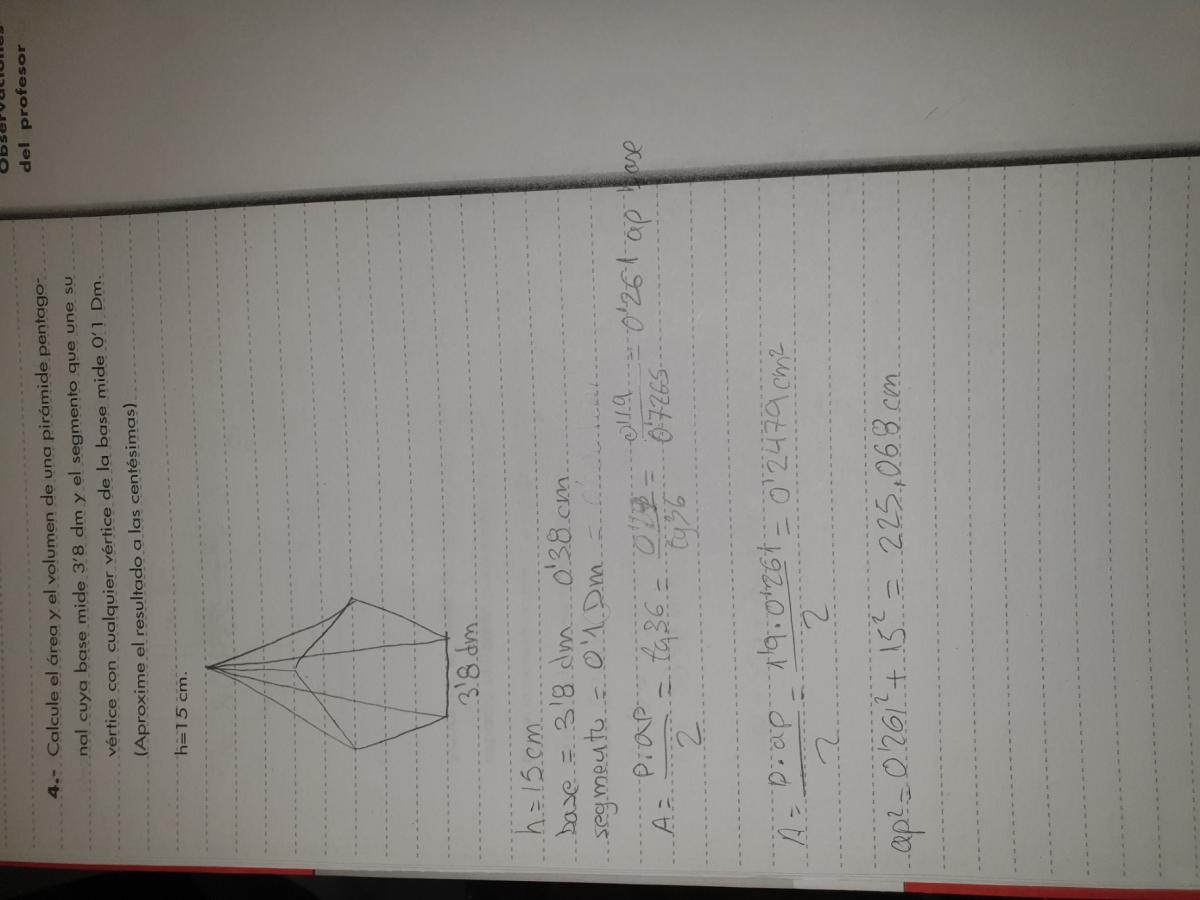 Observaciones
del profesor
4.- Calcule el área y el volumen de una pirámide pentago-
nal cuya base mide 3'8 dm y el segmento que une su
vértice con cualquier vértice de la base mide 0'1 Dm.
(Aproxime el resultado a las centésimas)
h=15 cm.
3'8 dm
h = 15 cm
base = 3'8 dm 0'38 cm
segmento = 0'1 Dm =
A = p.ap/2 = tg36 = /tg36 = 0'19/0'7265 = 0'261 ap base
A = p.ap/2 = 1'9.0'261/2 = 0'2479 cm²
ap² = 0'261² + 15² = 225,068 cm